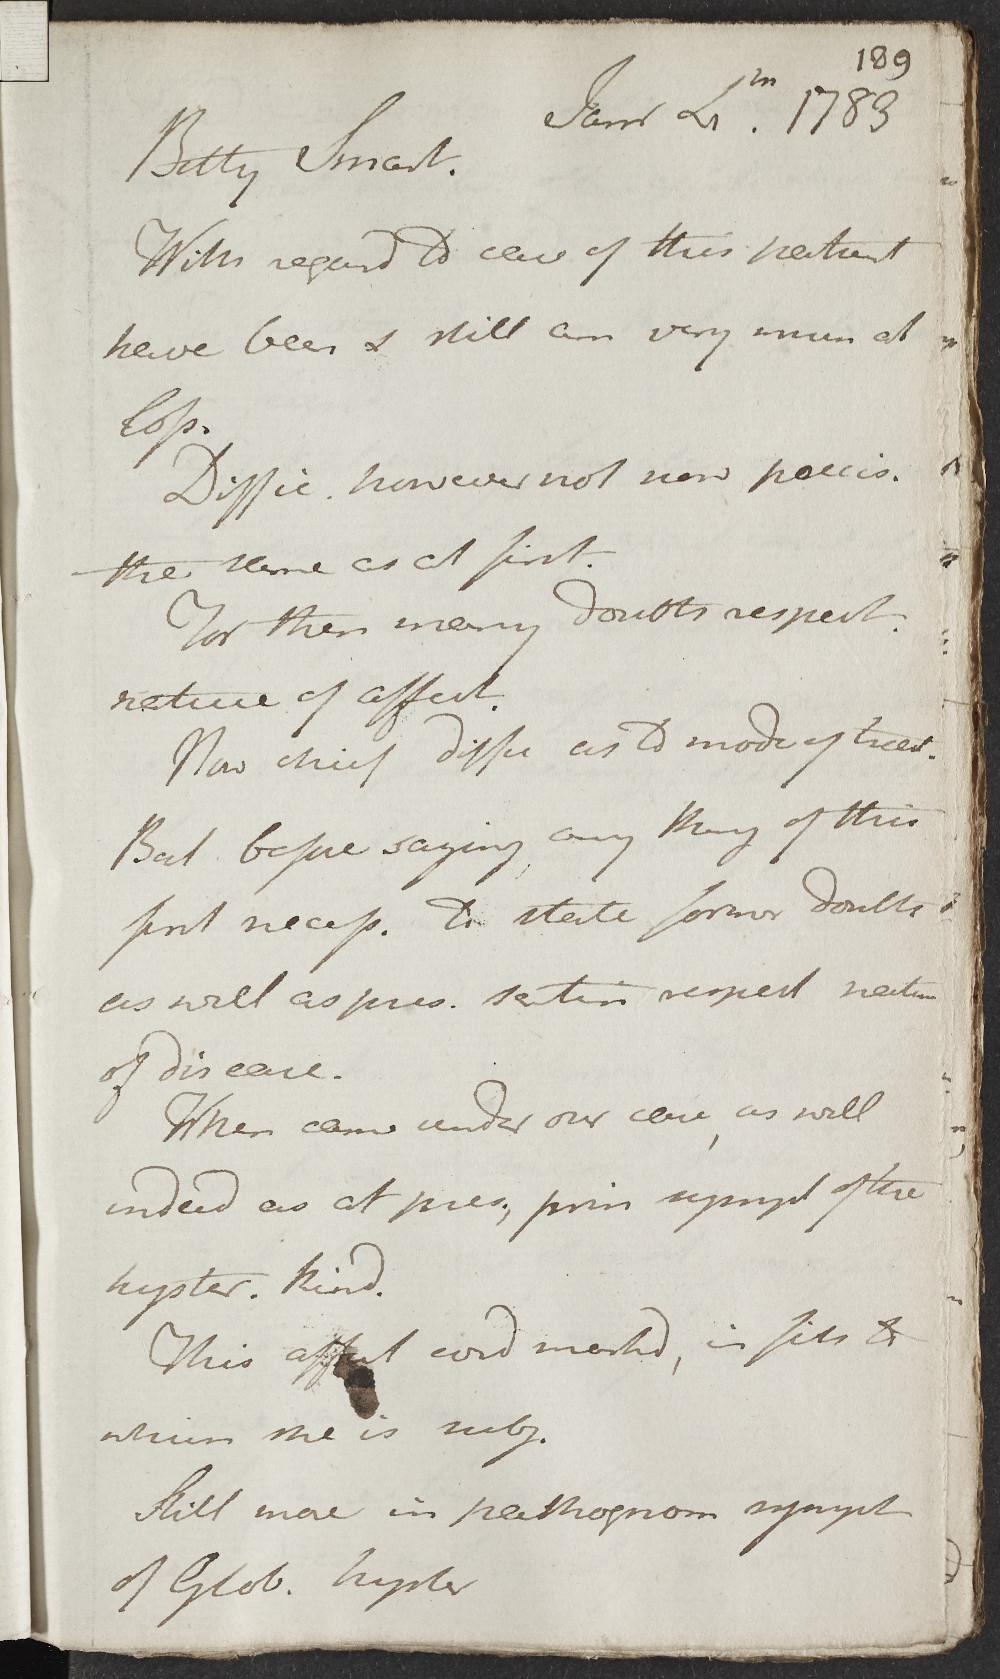 189
Janr 4th. 1783
Betty Smart.
With regard to case of this patient
have been & still am very much at
loss.
Diffic. however not now precis.
the same as at first.
For then many doubts respect.
nature of affect.
Now chief diffic as to mode of treat.
But before saying any thing of this
first necess. to state former doubts
as well as pres. sentim respect nature
of disease.
When came under our care, as well
indeed as at pres., prin sympt of the
hyster. kind.
This affect markd, in fits to
which she is subj.
Still more in pathognom sympt
of Glob. hyster